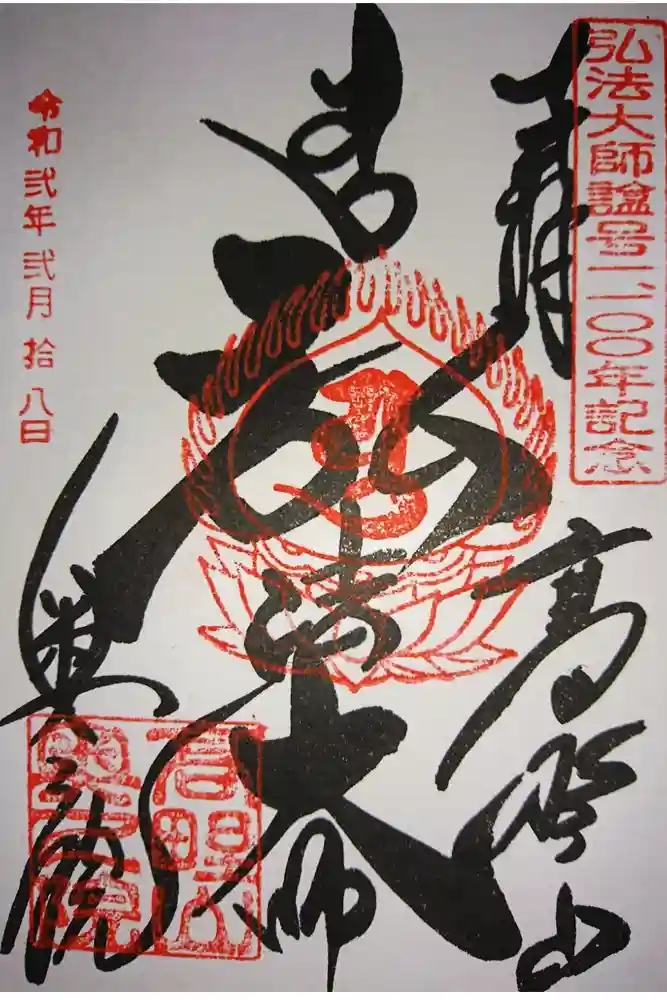 弘法大師諡号一、一〇〇年記念
奉
高野山
弘法大師
奥之院
高野山
奥之院
令和弐年弐月拾八日